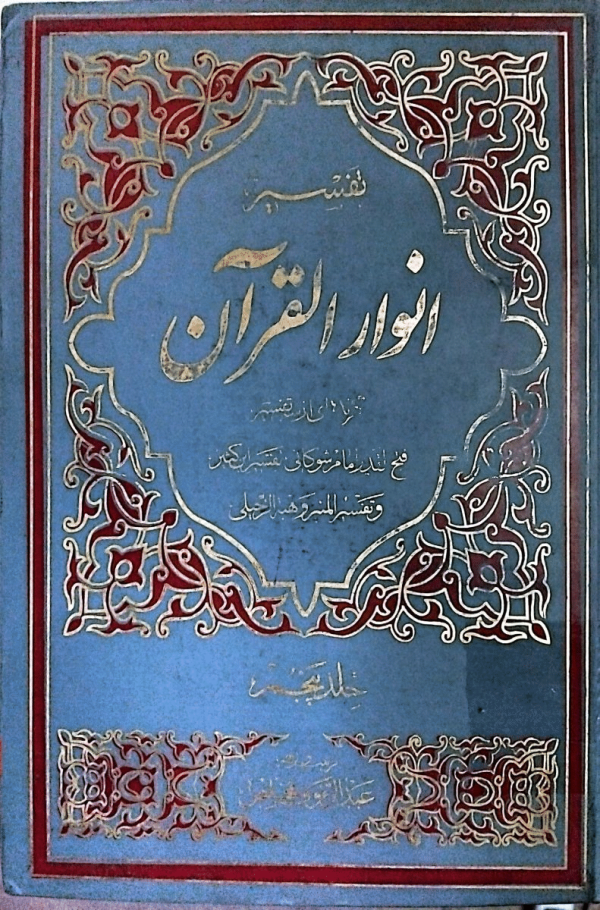 تفسیر
انوار القرآن
گزیده‌ای از سه تفسیر:
فتح القدیر امام شوکانی تفسیر ابن کثیر
و تفسیر المنیر وهبه الزحیلی
جلد پنجم
عبدالرؤوف مخلص